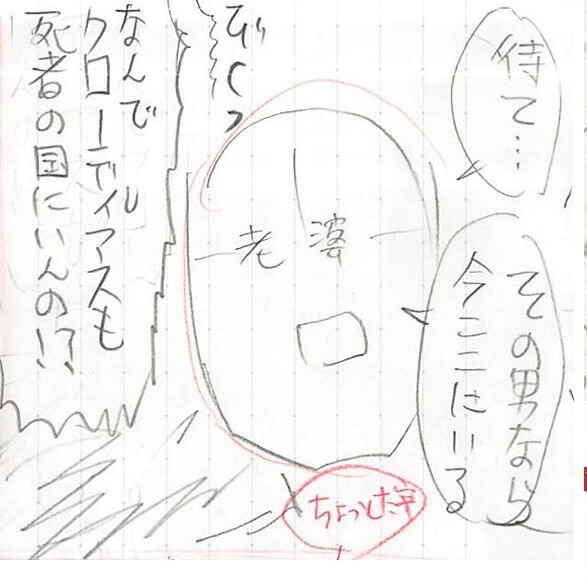 待て…
その男なら
今ここにいる
びくっ
老婆
なんで
クローディアスも
死者の国にいんの!?
ちょっと